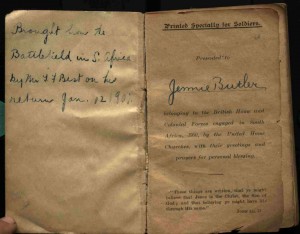 Brought from the
Battlefield in S. Africa
by Mr F J Best on his
return Jan. 12
Printed Specially for Soldiers.
Presented to
Jennie Butler
belonging to the British Home and
Colonial Forces engaged in South
Africa, 1900, by the United Home
Churches, with their greetings and
prayers for personal blessing.
"These things are written, that ye might
believe that Jesus is the Christ, the Son of
God; and that believing ye might have life
through His name."